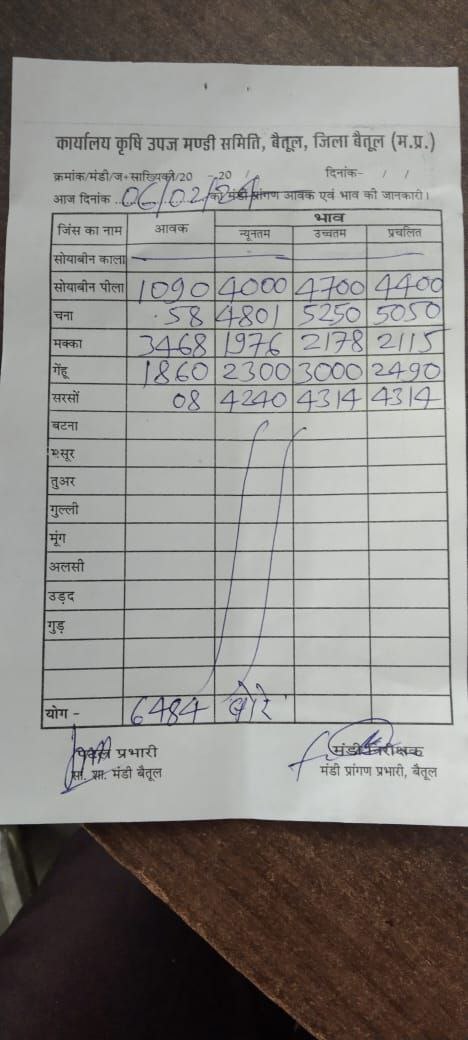 कार्यालय कृषि उपज मण्डी समिति, बैतूल, जिला बैतूल (म.प्र.)
क्रमांक/मंडी/ज+सांख्यिकी/20 -20 / दिनांक- / /
आज दिनांक ..06/02/24 को मंडी प्रांगण आवक एवं भाव की जानकारी।
जिंस का नाम आवक भाव
न्यूनतम उच्चतम प्रचलित
सोयाबीन काला
सोयाबीन पीला 1090 4000 4700 4400
चना 58 4801 5250 5050
मक्का 3468 1976 2178 2115
गेंहू 1860 2300 3000 2490
सरसों 08 4240 4314 4314
बटना
मसूर
तुअर
गुल्ली
मूंग
अलसी
उड़द
गुड़
योग - 6484 बोरे
प्रभारी मंडी निरीक्षक
सा. शा. मंडी बैतूल मंडी प्रांगण प्रभारी, बैतूल